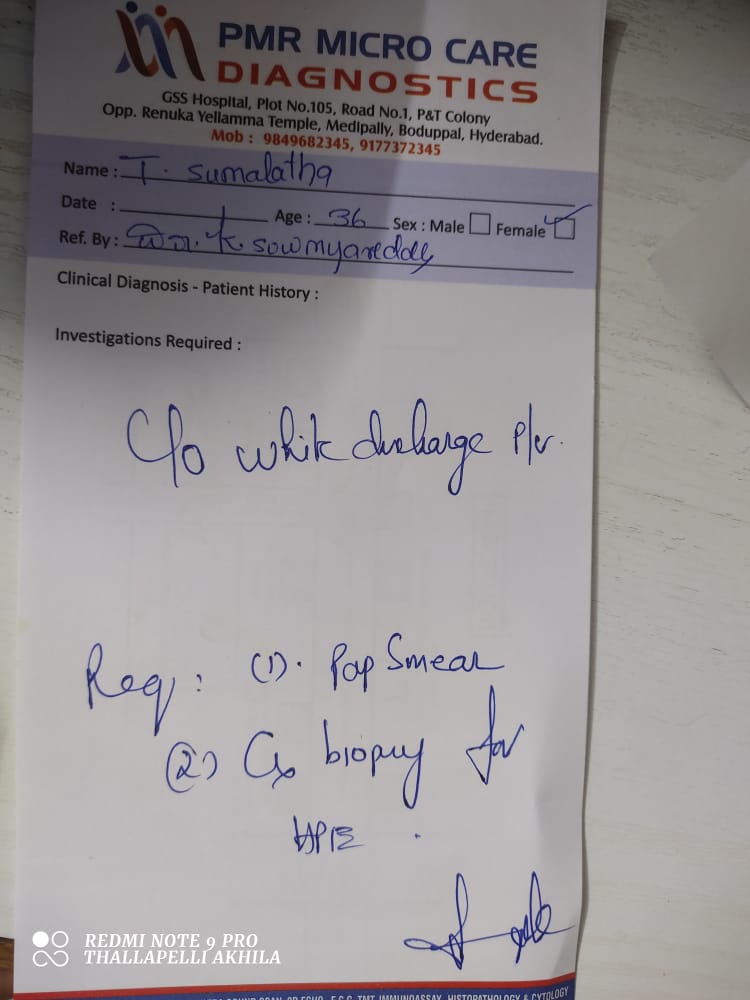 PMR MICRO CARE
DIAGNOSTICS
GSS Hospital, Plot No.105, Road No.1, P&T Colony
Opp. Renuka Yellamma Temple, Medipally, Boduppal, Hyderabad.
Mob : 9849682345, 9177372345
Name : T. Sumalatha
Date : Age : 36 Sex : Male Female
Ref. By : Dr. K. sowmyareddy
Clinical Diagnosis - Patient History :
Investigations Required :
C/o white discharge P/v.
Req : (1). Pap Smear
(2) Cx biopsy for
HPE
REDMI NOTE 9 PRO
THALLAPELLI AKHILA
E.C.G, TMT, IMMUNOASSAY, HISTOPATHOLOGY & CYTOLOGY